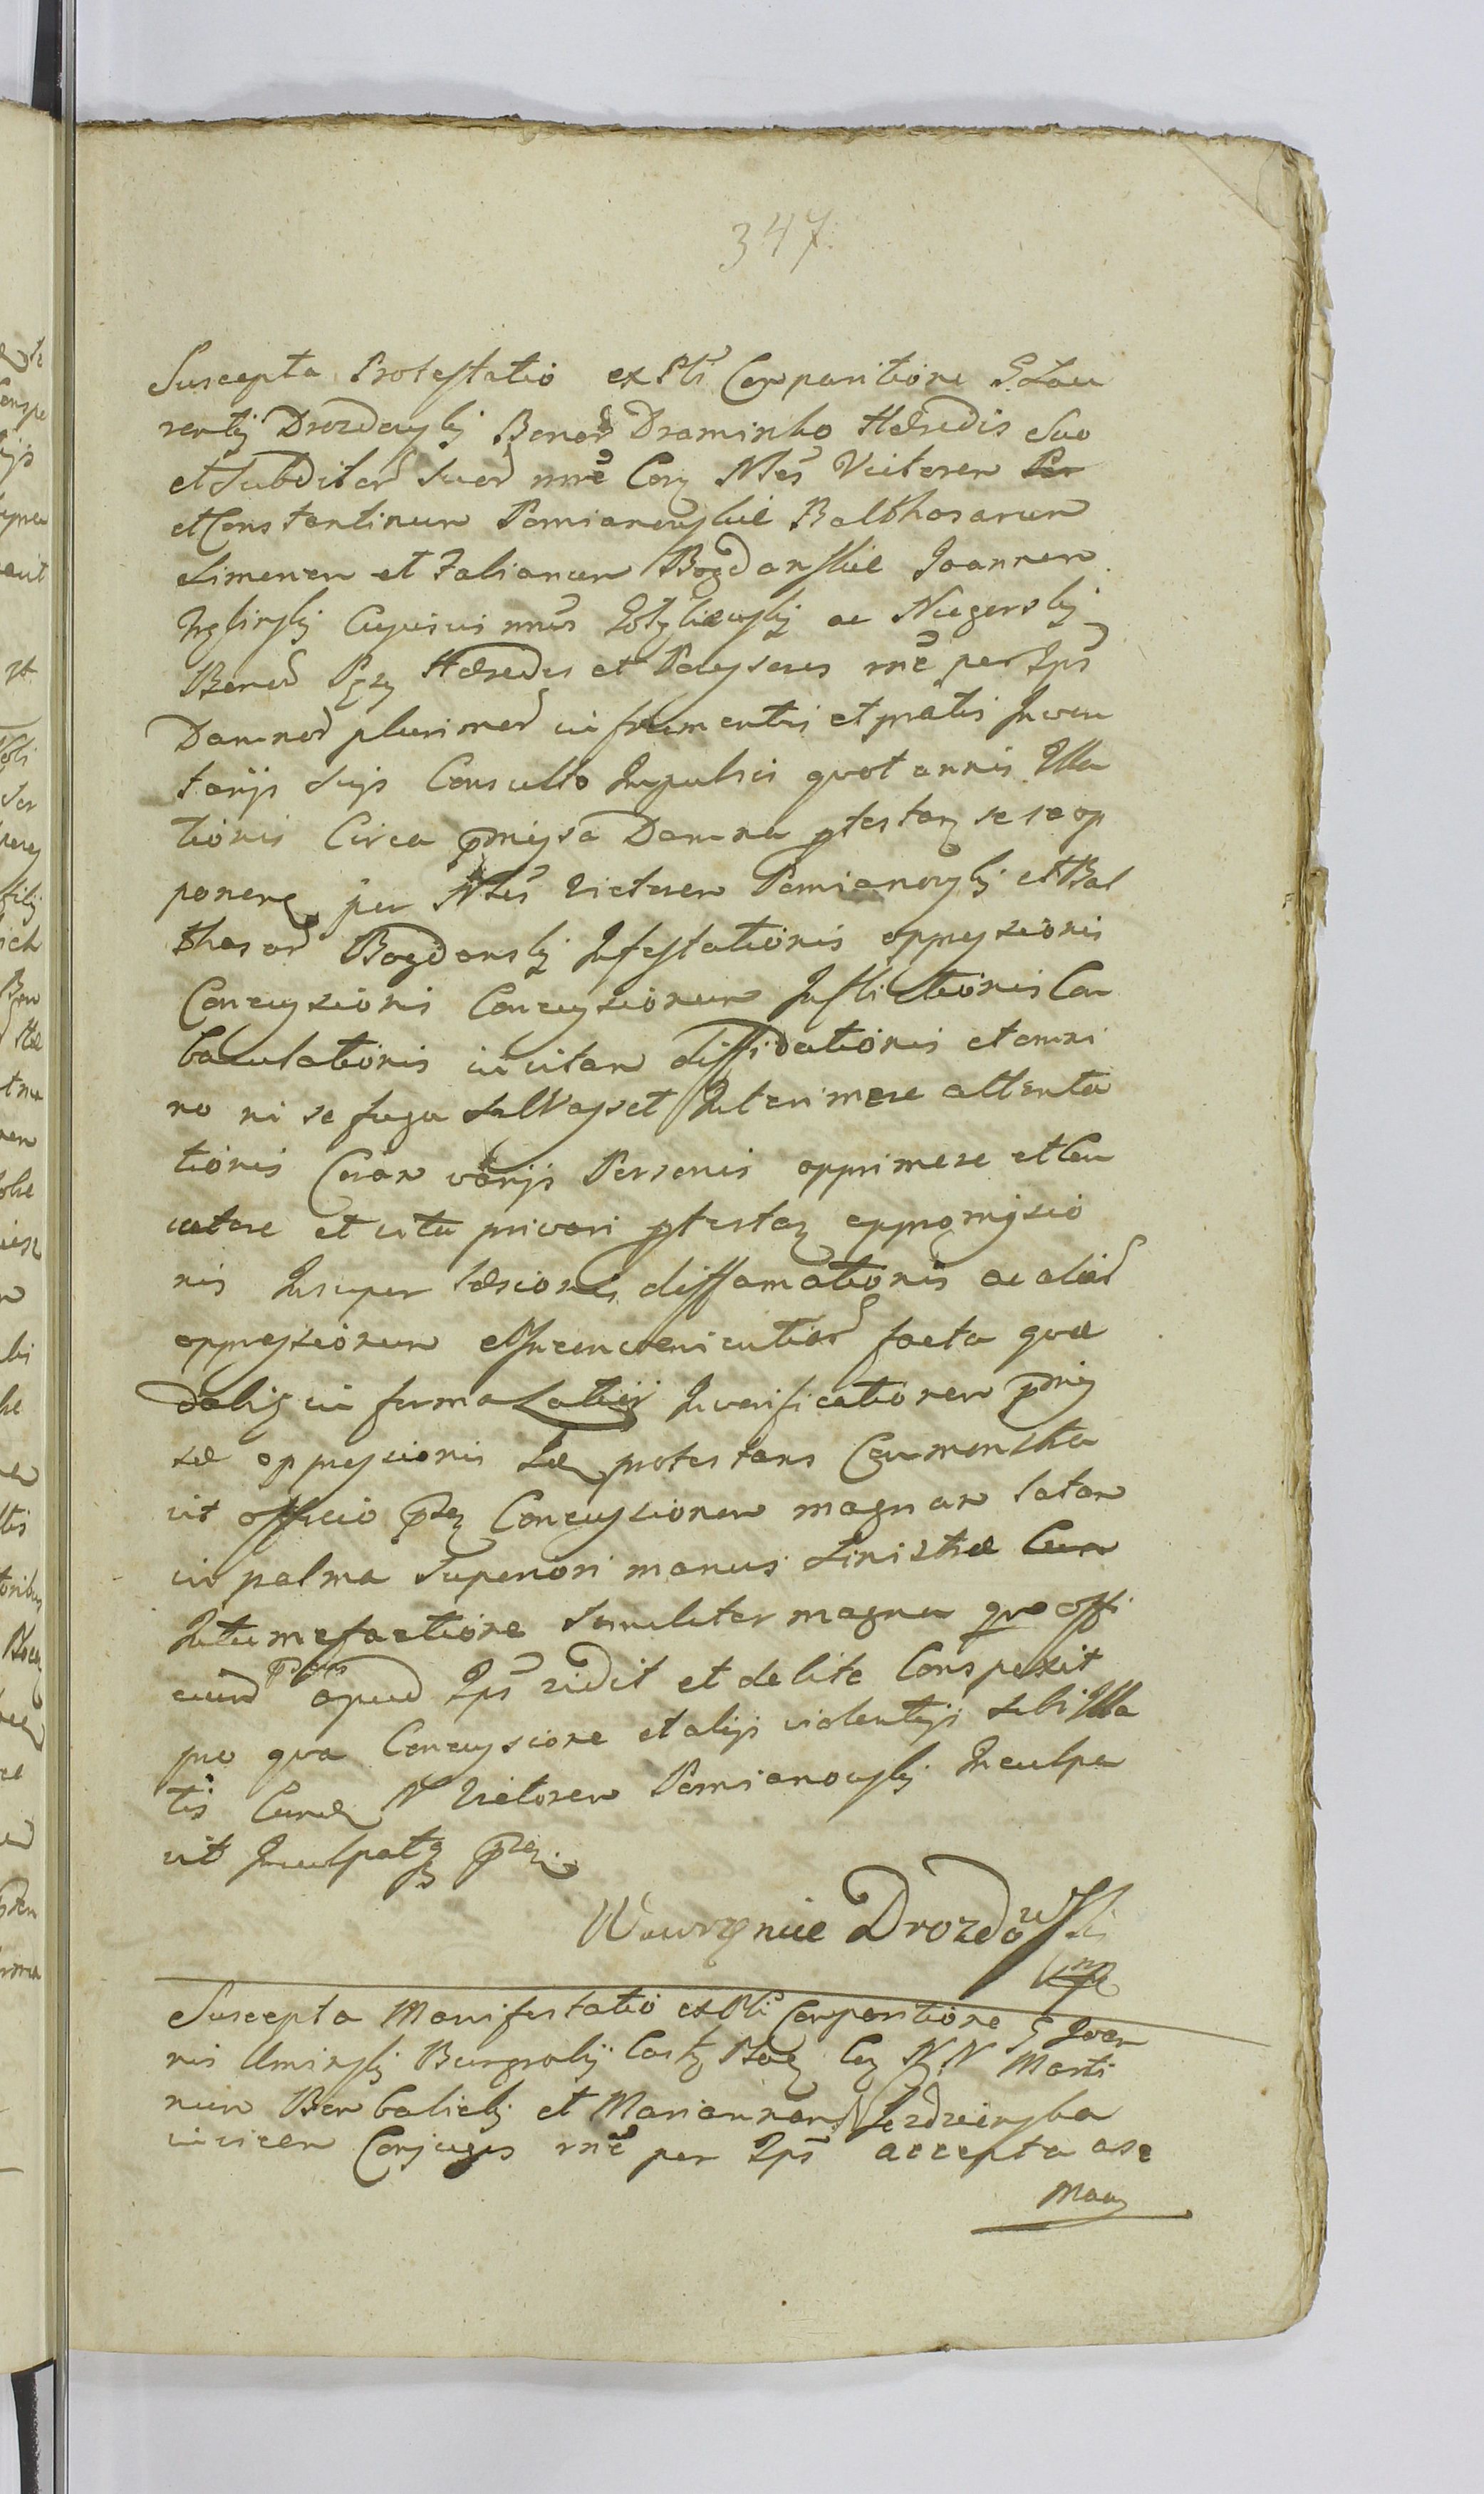 347.
Suscepta Protestatio ex Pli Comparitione G. Lau
rentij Drozdowskij Bonor Draminko Hæredis suo
et Subditor suor nne Con Nles Victorem
et Constantinum Pomianowskie Balthasarum
Simonem et Fabianum Bogdanskie Joannem
cujusvis nnis ac
Bonor Hæredes et Possessores nne per Ips
Damnor plurimor in frumentis et pratis Inven
tarijs suis Consulto Impulsis quot annis Illa
tionis Circa pmissa Damna ptestan se se op
ponend per Nles Victorem Pomianowskij et Bal
thasar Bogdanskij Infestationis oppressionis
Concussionis Concussionum Inflictionis Con
baculationis in vitam diffidationis et omni
no ni se fuga salvasset Interimere attenta
tionis Coram varijs Personis opprimere et Con
cutere et vita privari ptestan appromissio
nis Insuper læsionis diffamationis ac aliar
oppressionum et Inconvenientiar facta quæ
dabis in forma Latiori In verificationem pmis
sæ oppressionis Idem protestans Commonstra
vit officio pnti Concussionem magnam latam
in palma superiori manus sinistræ Cum
Intumefactione similiter magna quo offi
cium pns apud Ips vidit et de lite Conspexit
pro qua Concussione et alijs violentijs sibi Illa
tis Eund N Victorem Pomianowskij Inculpa
vit Inculpatq pnti.
Wawrzyniec Drozdowski
mp
Suscepta Manifestatio ex Pli Comparitione G Joan
nis Uminskij Burgrabij Castr Con N N Marti
num et Mariannam
invicem Conjuges nne per Ips accepta a se
Man